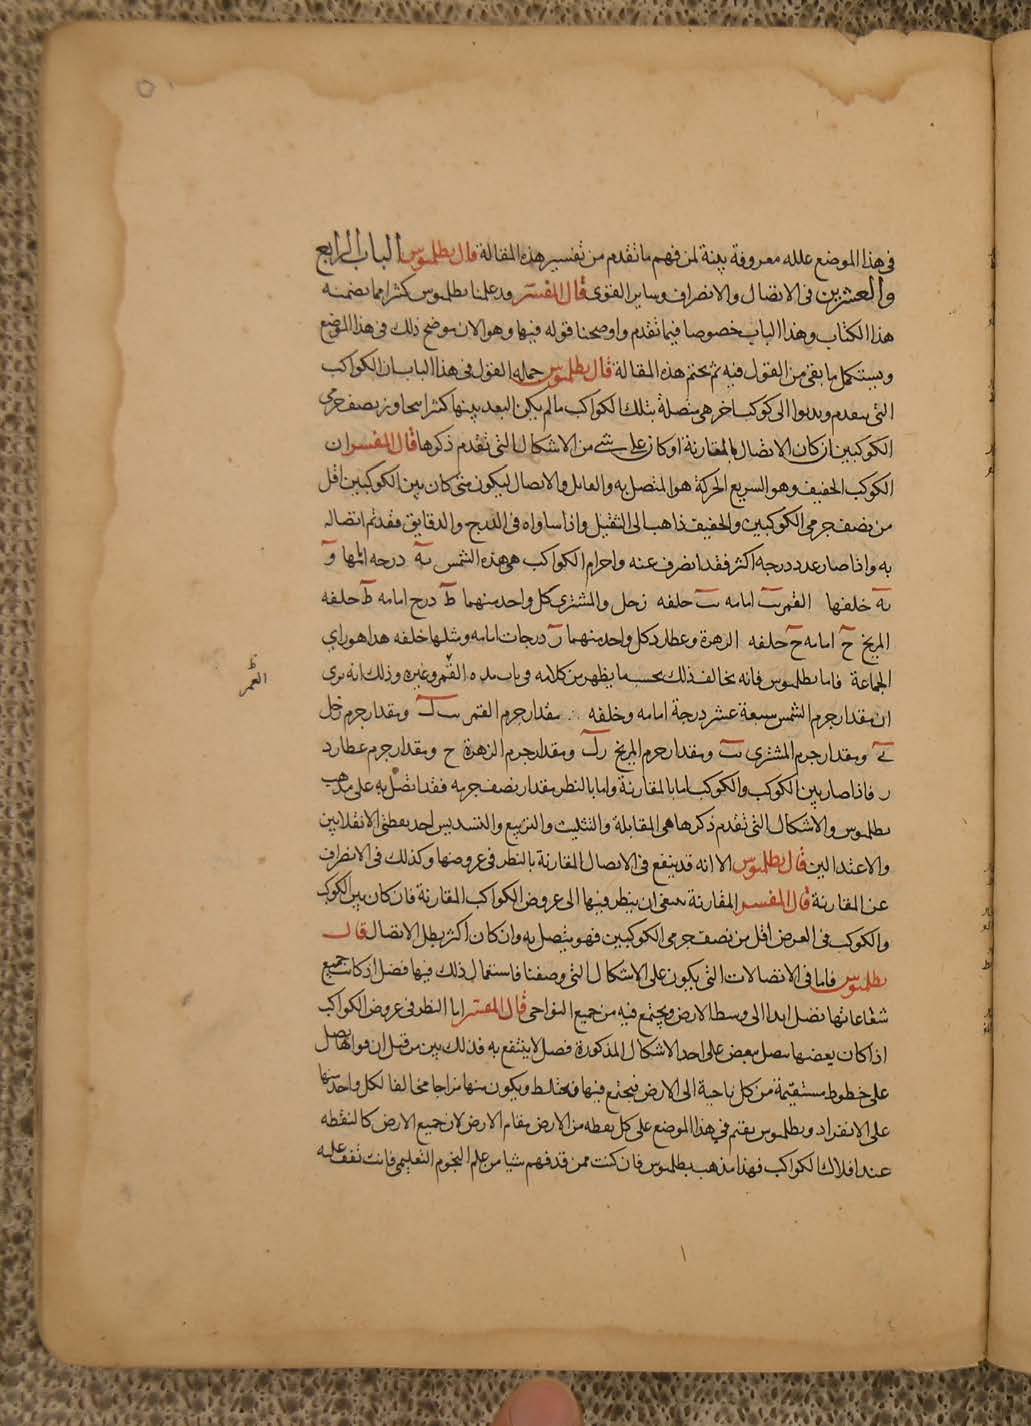 في هذا الموضع علله معروفة بينة لمن فهم ما تقدم من تفسير هذه المقالة قال بطلميوس الباب الرابع
والعشرين في الاتصال والانصراف وساير القوى قال المفسر قد علمنا بطلميوس كثيرا مما يتضمنه
هذا الكتاب وهذا الباب خصوصا فيما تقدم واوضحنا قوله فيها وهو الان موضح ذلك في هذا الموضع
ويستكمل ما بقى من القول فيه ثم يختم هذه المقالة قال بطلميوس جملة القول في هذا الباب ان الكواكب
التي تتقدم وتدنوا الى كوكب اخر هي متصلة بتلك الكواكب ما لم يكن البعد بينها كثيرا يتجاوز نصف جرمي
الكوكبين ان كان الاتصال بالمقارنة او كان على شي من الاشكال التي تقدم ذكرها قال المفسر ان
الكوكب الخفيف وهو السريع الحركة هو المتصل به والقابل والاتصال ليكون متى كان بين الكوكبين اقل
من نصف جرمي الكوكبين والخفيف ذاهب الى الثقيل واذا ساواه في الدرج والدقايق فقد تم اتصاله
به واذا صار عدد درجه اكثر فقد انصرف عنه واجرام الكواكب هي هذه الشمس يه درجه امامها و
يه خلفها القمر يب امامه يب خلفه زحل والمشتري كل واحد منهما ط درج امامه ط خلفه
المريخ ح امامه ح خلفه الزهرة وعطارد كل واحد منهما ز درجات امامه ومثلها خلفه هذا هو راي
الجماعة فاما بطلميوس فانه يخالف ذلك بحسب ما يظهر من كلامه القمر وغيره وذلك انه يرى
ان مقدار جرم الشمس سبعة عشر درجة امامه وخلفه ∴ مقدار جرم القمر ومقدار جرم زحل
ومقدار جرم المشتري ومقدار جرم المريخ ومقدار جرم الزهرة ح ومقدار جرم عطارد
ز فاذا صار بين الكوكب والكوكب اما بالمقارنة واما بالنظر مقدار نصف جرمه فقد اتصل به على مذهب
بطلميوس والاشكال التي تقدم ذكرها هي المقابلة والتثليث والتربيع والتسديس احد نقطتي الانقلابين
والاعتدالين قال بطلميوس الا انه قد ينفع في الاتصال المقارنة بالنظر في عروضها وكذلك في الانصراف
عن المقارنة قال المفسر المقارنة ينبغي ان ينظر فيها الى عروض الكواكب المقارنة فان كان بين الكوكب
والكوكب في العرض اقل من نصف جرمي الكوكبين فهو يتصل به وان كان اكثر بطل الاتصال قال
بطلميوس فاما في الاتصالات التي يكون على الاشكال التي وصفنا فاستعمال ذلك فيها فضل اذ كانت جميع
شعاعاتها تصل ابدا الى وسط الارض ويجتمع فيه من جميع النواحي قال المفسر اما النظر في عروض الكواكب
اذا كان بعضها يتصل ببعض على احد الاشكال المذكورة فضل لا ينتفع به فذلك بين من قبل ان قواتها يصل
على خطوط مستقيمة من كل ناحية الى الارض فيجتمع فيها فيختلط ويكون منها مزاجا مخالفا لكل واحد منها
على الانفراد وبطلميوس يقيم في هذا الموضع على كل نقطة من الارض مقام الارض لان جميع الارض كالنقطه
عند افلاك الكواكب فهذا مذهب بطلميوس فان كنت ممن قد فهم شيا من علم النجوم التعليمي فانت تقف عليه
ط
القمر